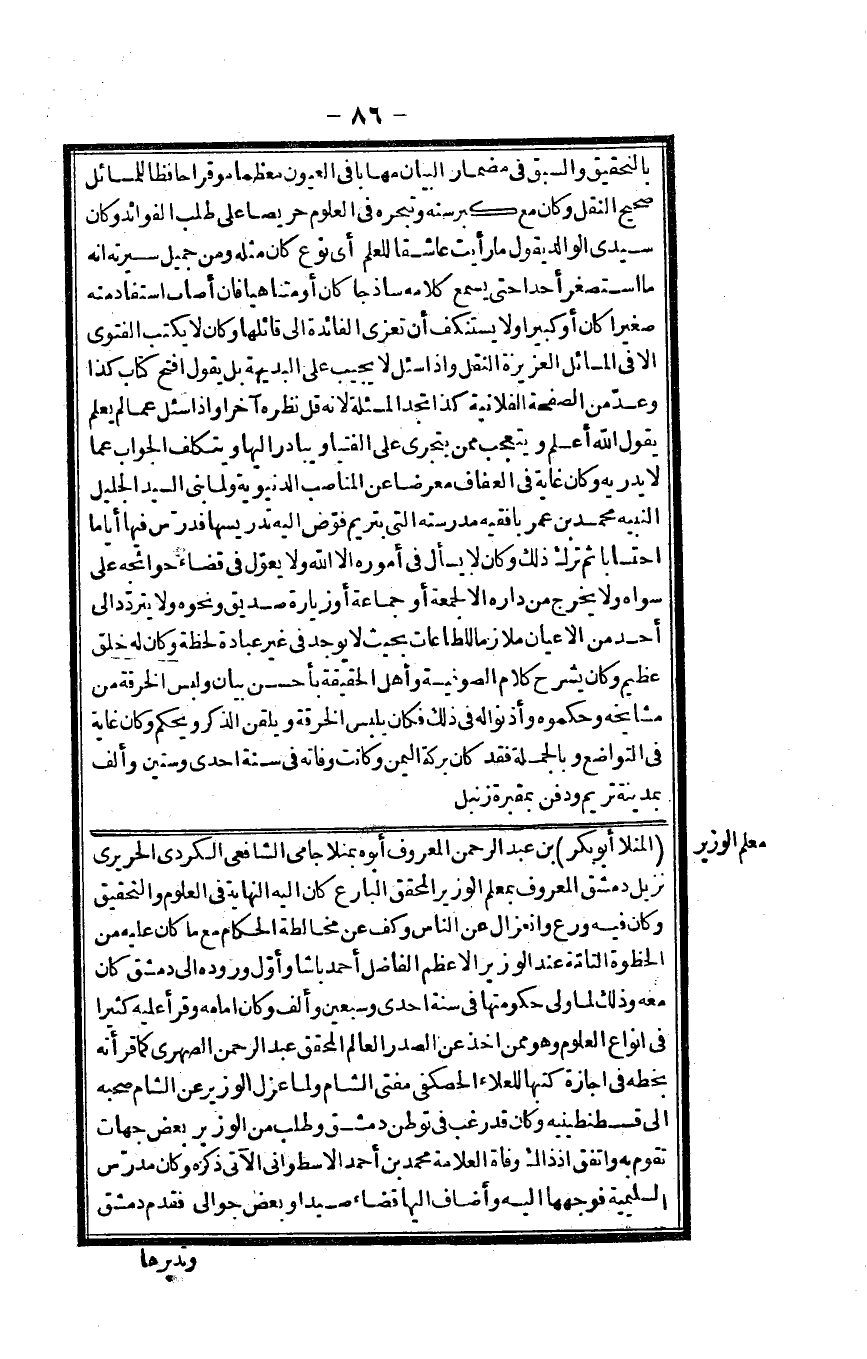 - ٨٦ -
بالتحقيق والسبق فى مضمار البيان مهابا فى العيون معظما موقرا حافظا للمسائل
صحيح النقل وكان مع كبر سنه وتبحره فى العلوم حريصا على طلب الفوائد وكان
سيدى الوالد يقول ما رأيت عاشقا للعلم أى نوع كان مثله ومن جميل سيرته انه
ما استصغر أحدا حتى يسمع كلامه ساذجا كان أو متناهيا فان أصاب استفاد منه
صغيرا كان أو كبيرا ولا يستنكف أن تعزى الفائدة الى قائلها وكان لا يكتب الفتوى
الا فى المسائل العزيزة النقل واذا سئل لا يجيب على البديهة بل يقول افتح كتاب كذا
وعدّ من الصفحة الفلانية كذا تجد المسئلة لانه قل نظره آخرا واذا سئل عما لم يعلم
يقول الله أعلم ويتعجب ممن يتجرى على الفتيا ويبادر اليها ويتكلف الجواب عما
لا يدريه وكان غاية فى العفاف معرضا عن المناصب الدنيوية ولما بنى السيد الجليل
النبيه محمد بن عمر بافقيه مدرسته التى بتريم فوّض اليه تدريسها فدرّس فيها أياما
احتسابا ثم ترك ذلك وكان لا يسأل فى أموره الا الله ولا يعوّل فى قضاء حوائجه على
سواه ولا يخرج من داره الا لجمعة أو جماعة أو زيارة صديق ونحوه ولا يتردّد الى
أحد من الاعيان ملازما للطاعات بحيث لا يوجد فى غير عبادة لحظة وكان له خلق
عظيم وكان يشرح كلام الصوفية وأهل الحقيقة بأحسن بيان ولبس الخرقة من
مشايخه وحكموه وأذنوا له فى ذلك فكان يلبس الخرقة ويلقن الذكر ويحكم وكان غاية
فى التواضع وبالجملة فقد كان بركة اليمن وكانت وفاته فى سنة احدى وستين وألف
بمدينة تريم ودفن بمقبرة زنبل
معلم الوزير
(المنلا أبو بكر) بن عبد الرحمن المعروف أبوه بمنلا جامى الشافعى الكردى الحريرى
نزيل دمشق المعروف بمعلم الوزير المحقق البارع كان اليه النهاية فى العلوم والتحقيق
وكان فيه ورع وانعزال عن الناس وكف عن مخالطة الحكام مع ما كان عليه من
الحظوة التامّة عند الوزير الاعظم الفاضل أحمد باشا وأوّل وروده الى دمشق كان
معه وذلك لما ولى حكومتها فى سنة احدى وسبعين وألف وكان امامه وقرأ عليه كثيرا
فى انواع العلوم وهو ممن اخذ عن الصدر العالم المحقق عبد الرحمن الصهرى كما قرأته
بخطه فى اجازة كتبها للعلاء الحصكفى مفتى الشام ولما عزل الوزير عن الشام صحبه
الى قسطنطينيه وكان قد رغب فى توطن دمشق وطلب من الوزير بعض جهات
تقوم به واتفق اذ ذاك وفاة العلامة محمد بن أحمد الاسطوانى الآتى ذكره وكان مدرّس
السليمية فوجهها اليه وأضاف اليها قضاء صيدا وبعض جوالى فقدم دمشق
وتديرها